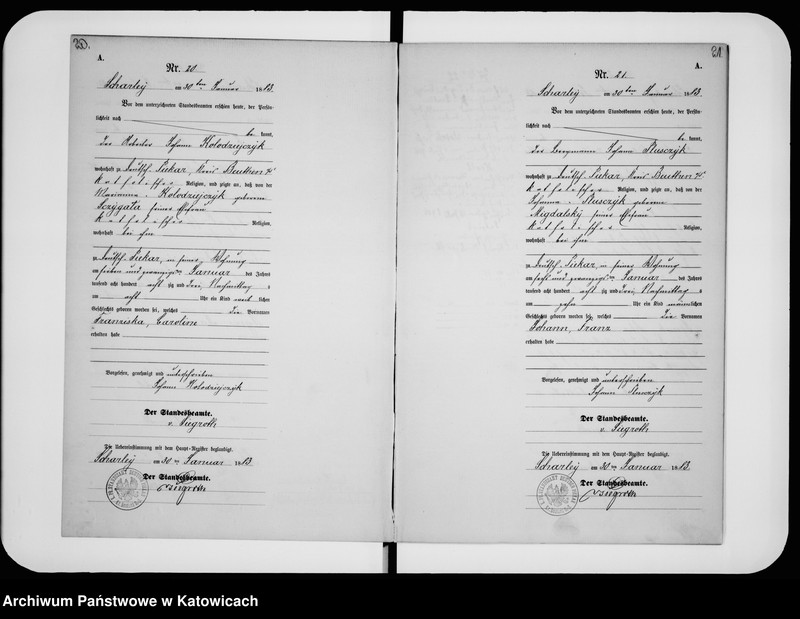 20.
A.
Nr. 20.
Scharley am 30ten Januar 1883.
Vor dem unterzeichneten Standesbeamten erschien heute, der Persön-
lichkeit nach
be kannt,
der Arbeiter Johann Kolodziejczyk
wohnhaft zu Deutsch Piekar, Kreis Beuthen
katholischer Religion, und zeigte an, daß von der
Marianna Kolodziejczyk geborene
seiner Ehefrau
katholischer Religion,
wohnhaft bei ihm
zu Deutsch Piekar, in seiner Wohnung
am sieben und zwanzigten Januar des Jahres
tausend acht hundert acht zig und drei Nachmittags
um acht Uhr ein Kind weib lichen
Geschlechts geboren worden sei, welches die Vornamen
Franziska, Caroline
erhalten habe
Vorgelesen, genehmigt und unterschrieben
Johann Kolodziejczyk
Der Standesbeamte.
v. Siegroth
Die Uebereinstimmung mit dem Haupt-Register beglaubigt.
Scharley am 30ten Januar 1883
Der Standesbeamte.
v Siegroth
21
A.
Nr. 21.
Scharley am 30ten Januar 1883.
Vor dem unterzeichneten Standesbeamten erschien heute, der Persön-
lichkeit nach
be kannt,
der Bergmann Johann
wohnhaft zu Deutsch Piekar, Kreis Beuthen
katholischer Religion, und zeigte an, daß von der
Johanna geborene
seiner Ehefrau
katholischer Religion,
wohnhaft bei ihm
zu Deutsch Piekar, in seiner Wohnung
am sechs und zwanzigten Januar des Jahres
tausend acht hundert acht zig und drei Nachmittag s
um zehn Uhr ein Kind männlichen
Geschlechts geboren worden sei, welches die Vornamen
Johann, Franz
erhalten habe
Vorgelesen, genehmigt und unterschrieben
Johann
Der Standesbeamte.
v. Siegroth
Die Uebereinstimmung mit dem Haupt-Register beglaubigt.
Scharley am 30ten Januar 1883.
Der Standesbeamte.
v Siegroth
Archiwum Państwowe w Katowicach